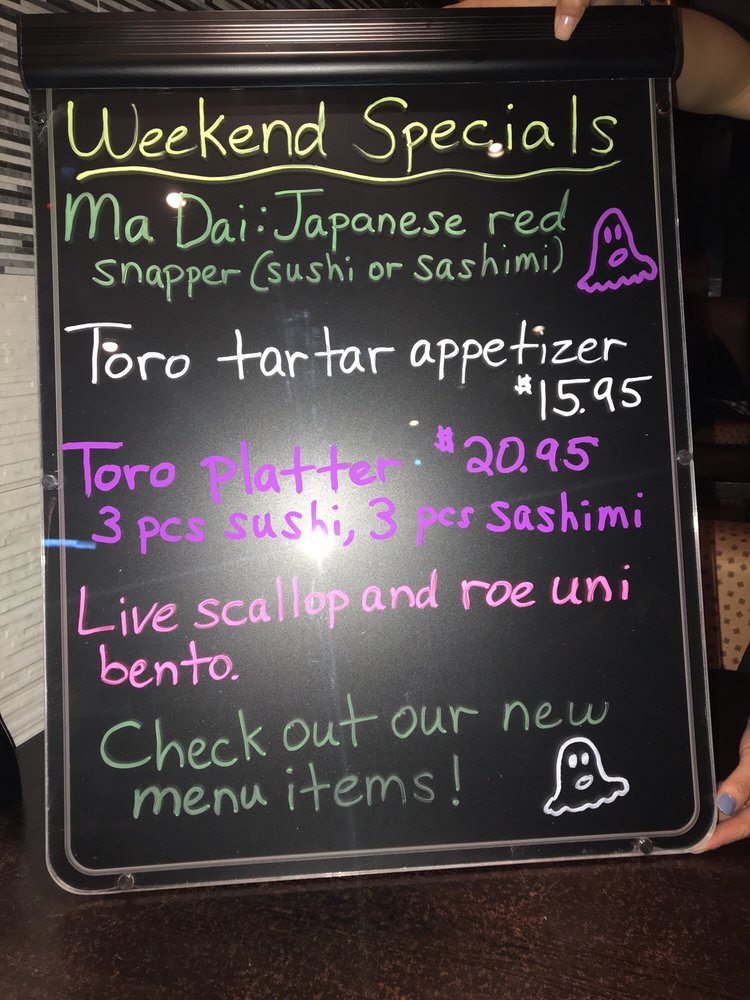 Weekend Specials
Ma Dai: Japanese red
snapper (sushi or sashimi)
Toro tartar appetizer
$15.95
Toro platter $20.95
3 pcs sushi, 3 pcs sashimi
Live scallop and roe uni
bento.
Check out our new
menu items!